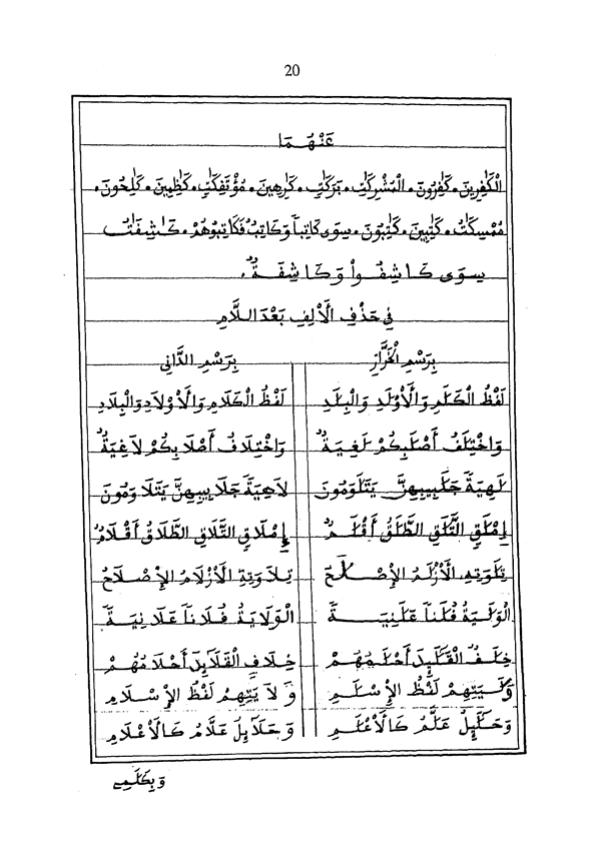 20
عَنْهُمَا
الْكَٰفِرِينَ . كَٰفِرُونَ . الْمُشْرِكَٰتِ . بَرَكَٰتٍ . كَٰرِهِينَ . مُؤْتَفِكَٰتِ . كَٰظِمِينَ . كَٰلِحُونَ .
مُمْسِكَٰتُ . كَٰتِبِينَ . كَٰتِبُونَ . سِوَى كَاتِباً وَكَاتِبٌ فَكَاتِبُوهُمْ . كَٰشِفَٰتُ
سِوَى كَاشِفُوا وَكَاشِفَةٌ .
فِي حَذْفِ الْأَلِفِ بَعْدَ اللَّامِ
بِرَسْمِ الْخَرَّازِ بِرَسْمِ الدَّانِي
لَفْظُ الْكَلَٰمِ وَالْأَوْلَٰدِ وَالْبِلَٰدِ لَفْظُ الْكَلَامِ وَالْأَوْلَادِ وَالْبِلَادِ
وَاخْتِلَٰفُ أَصْلَٰبِكُمْ لَٰغِيَةٌ وَاخْتِلَافُ أَصْلَابِكُمْ لَاغِيَةٌ
لَٰهِيَةً جَلَٰبِيبِهِنَّ يَتَلَٰوَمُونَ لَاهِيَةً جَلَابِيبِهِنَّ يَتَلَاوَمُونَ
إِمْلَٰقٍ التَّلَٰقِ الطَّلَٰقُ أَقْلَٰمٌ إِمْلَاقٍ التَّلَاقِ الطَّلَاقُ أَقْلَامٌ
تِلَٰوَتِهِ الْأَزْلَٰمُ الْإِصْلَٰحَ تِلَاوَتِهِ الْأَزْلَامُ الْإِصْلَاحُ
الْوَلَٰيَةُ فُلَٰناً عَلَٰنِيَةً الْوَلَايَةُ فُلَاناً عَلَانِيَةً
خِلَٰفَ الْقَلَٰٓئِدَ أَحْلَٰمُهُمْ خِلَافِ الْقَلَائِدَ أَحْلَامُهُمْ
وَلَٰيَتِهِمْ لَفْظُ الْإِسْلَٰمِ وَلَايَتِهِمْ لَفْظُ الْإِسْلَامِ
وَحَلَٰٓئِلُ عَلَّٰمُ كَالْأَعْلَٰمِ وَحَلَائِلُ عَلَّامُ كَالْأَعْلَامِ
وَبِكَلَٰمِي